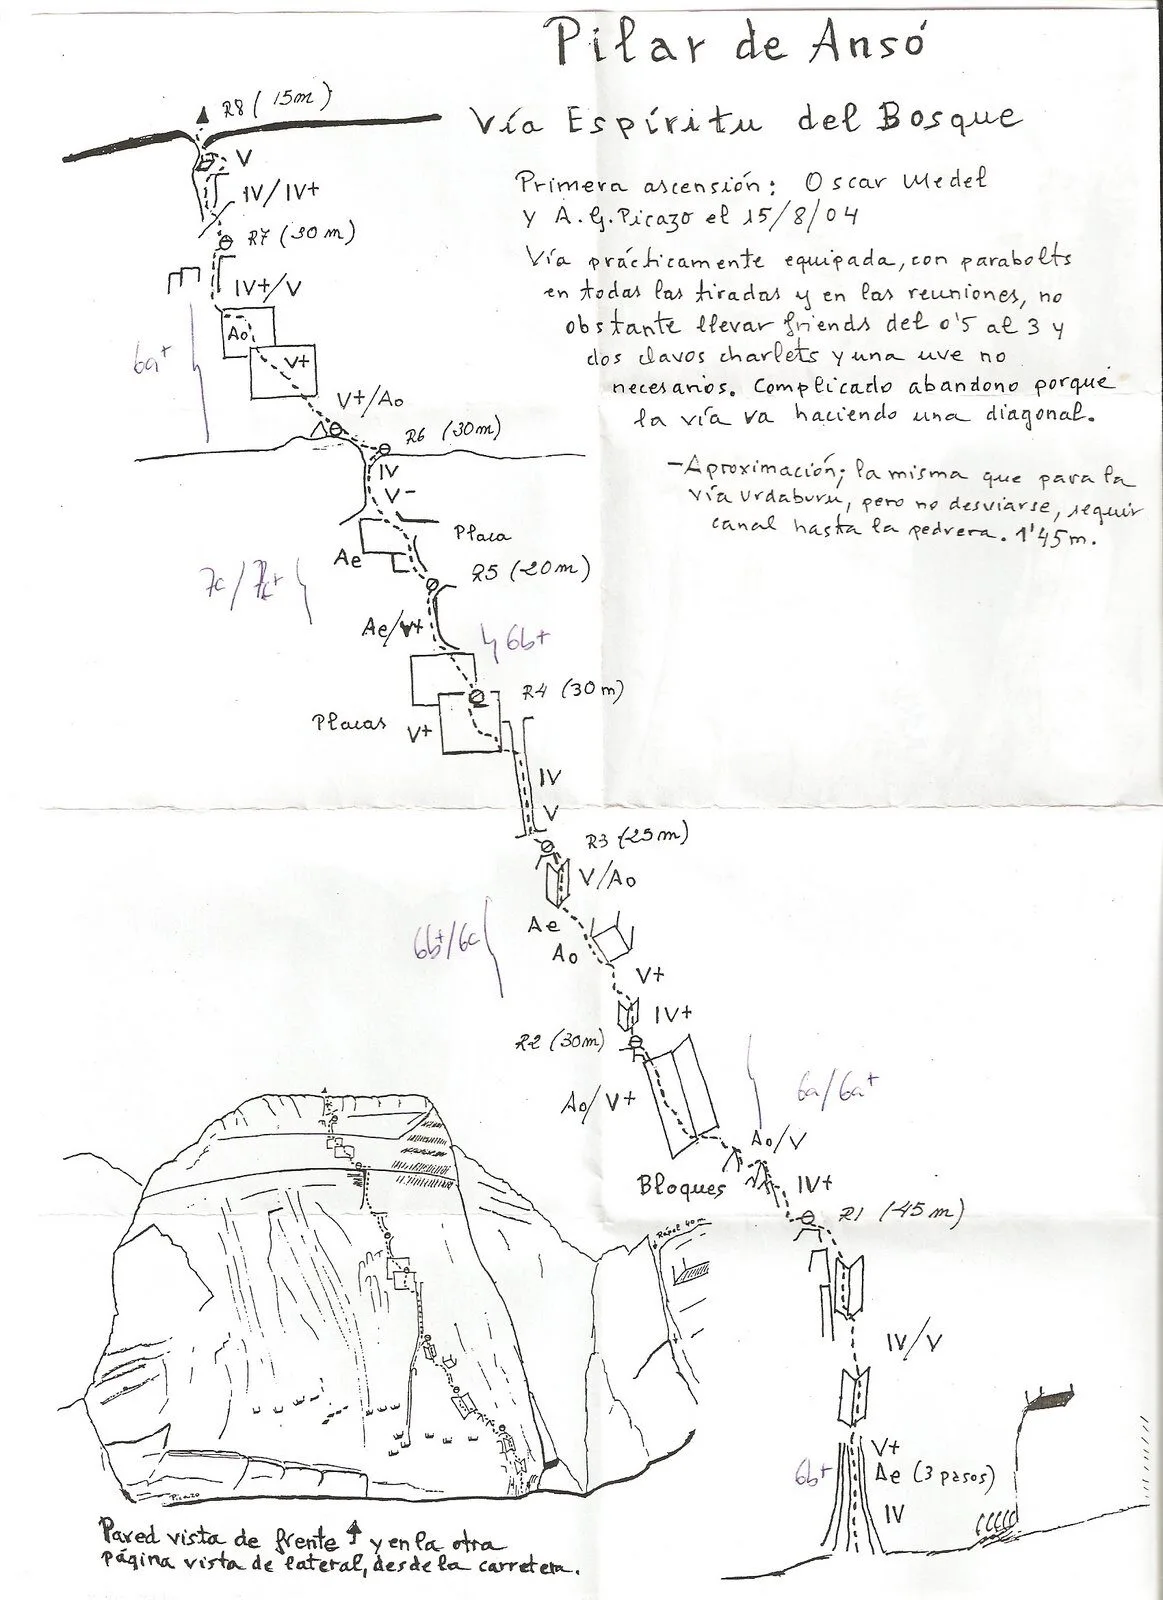 Pilar de Ansó
Vía Espíritu del Bosque
Primera ascensión: Oscar Medel
y A.G.Picazo el 15/8/04
Vía prácticamente equipada, con parabolts
en todas las tiradas y en las reuniones, no
obstante llevar friends del 0'5 al 3 y
dos clavos charlets y una uve no
necesarios. Complicado abandono porque
la vía va haciendo una diagonal.
-Aproximación; la misma que para la
vía Urdaburu, pero no desviarse, seguir
canal hasta la pedrera. 1'45m.
R8 (15m)
V
IV/IV+
R7 (30m)
IV+/V
Ao
6a+
V+
V+/Ao
R6 (30m)
IV
V-
Placa
Ae
R5 (20m)
7c/7c+
Ae/V+
6b+
R4 (30m)
Placas
V+
IV
V
R3 (25m)
V/Ao
Ae
6b+/6c
Ao
V+
IV+
R2 (30m)
6a/6a+
Ao/V+
Ao/V
Bloques
IV+
R1 (45m)
Rápel 40m
IV/V
V+
6b+
Ae (3 pasos)
IV
Picazo
Pared vista de frente y en la otra
página vista de lateral, desde la carretera.